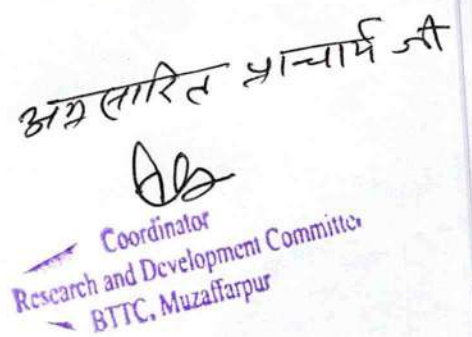 अग्रसारित प्राचार्य जी
Coordinator
Research and Development Committe
BTTC, Muzaffarpur